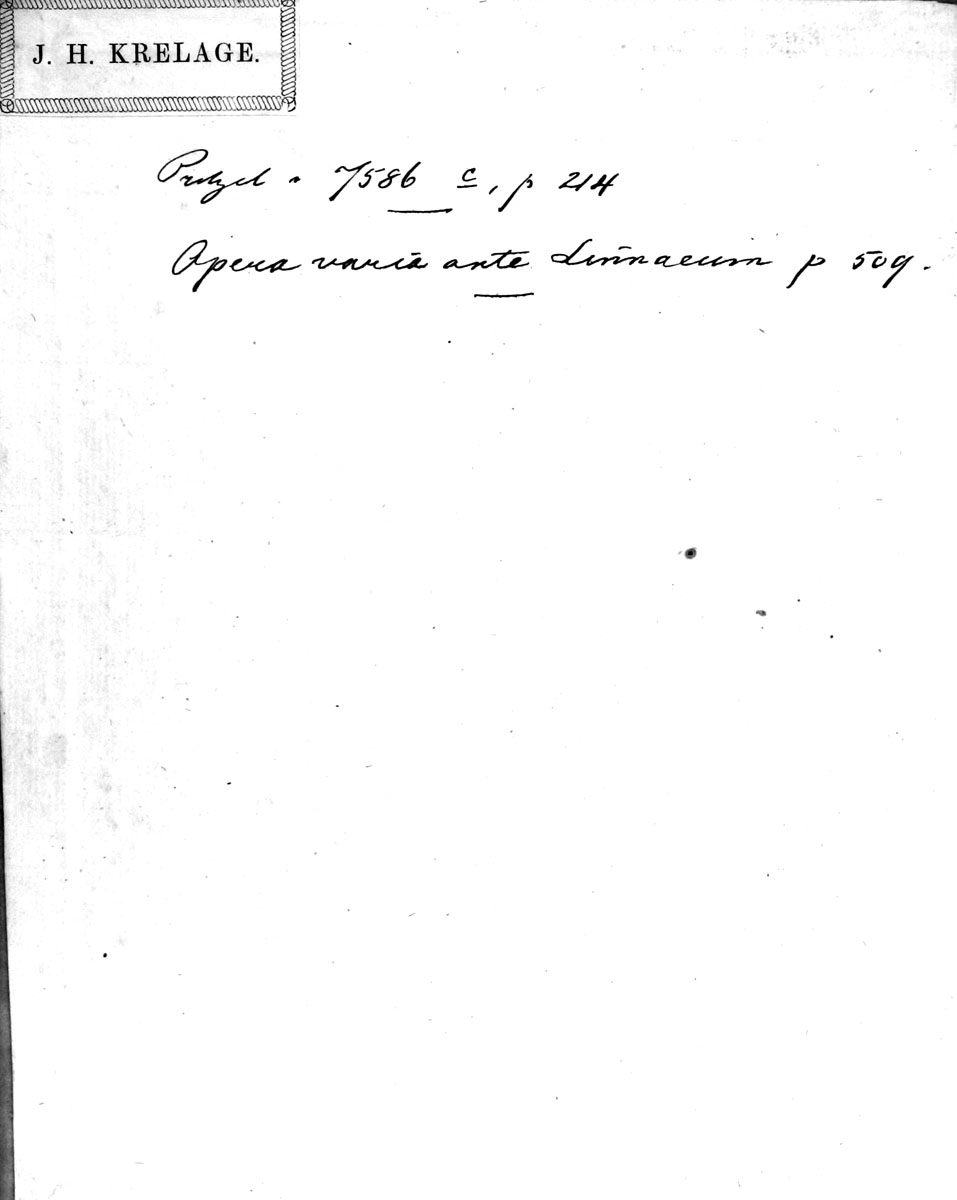 J. H. KRELAGE.
Pritzel n 7586 c, p 214
Opera varia ante Linnaeum p 509.